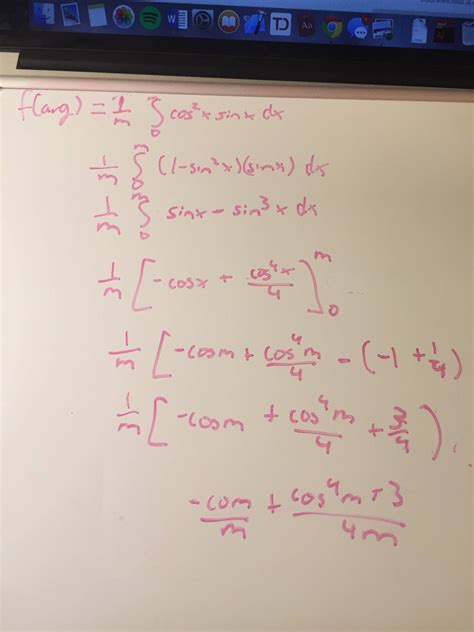 f(avg) = 1/m ∫₀ᵐ cos²x sinx dx
1/m ∫₀ᵐ (1-sin²x)(sinx) dx
1/m ∫₀ᵐ sinx - sin³x dx
1/m [-cosx + cos⁴x/4]₀ᵐ
1/m [-cosm + cos⁴m/4 - (-1 + 1/4)
1/m [-cosm + cos⁴m/4 + 3/4).
-com/m + cos⁴m+3/4m